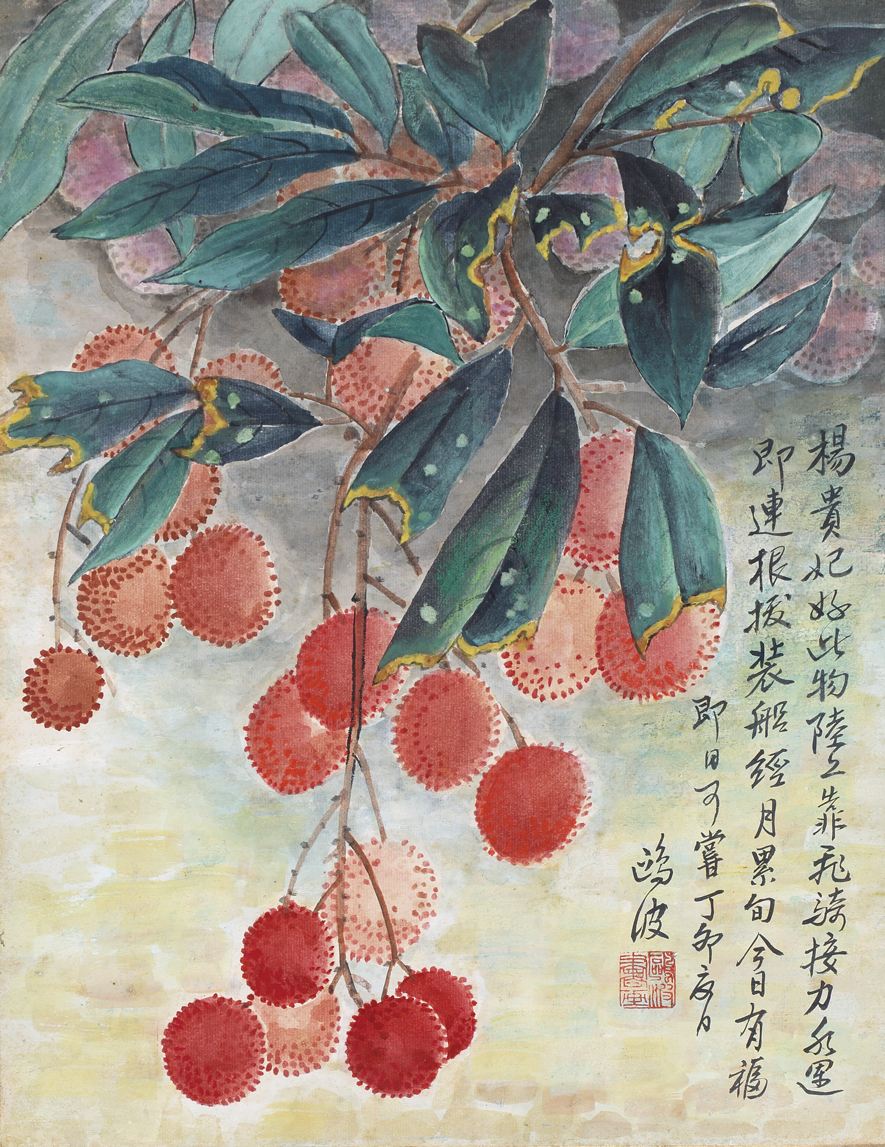 楊貴妃好此物陸上靠飛騎接力水運
即連根拔裝船經月累旬今日有福
即日可嘗丁卯夏日
鷗波